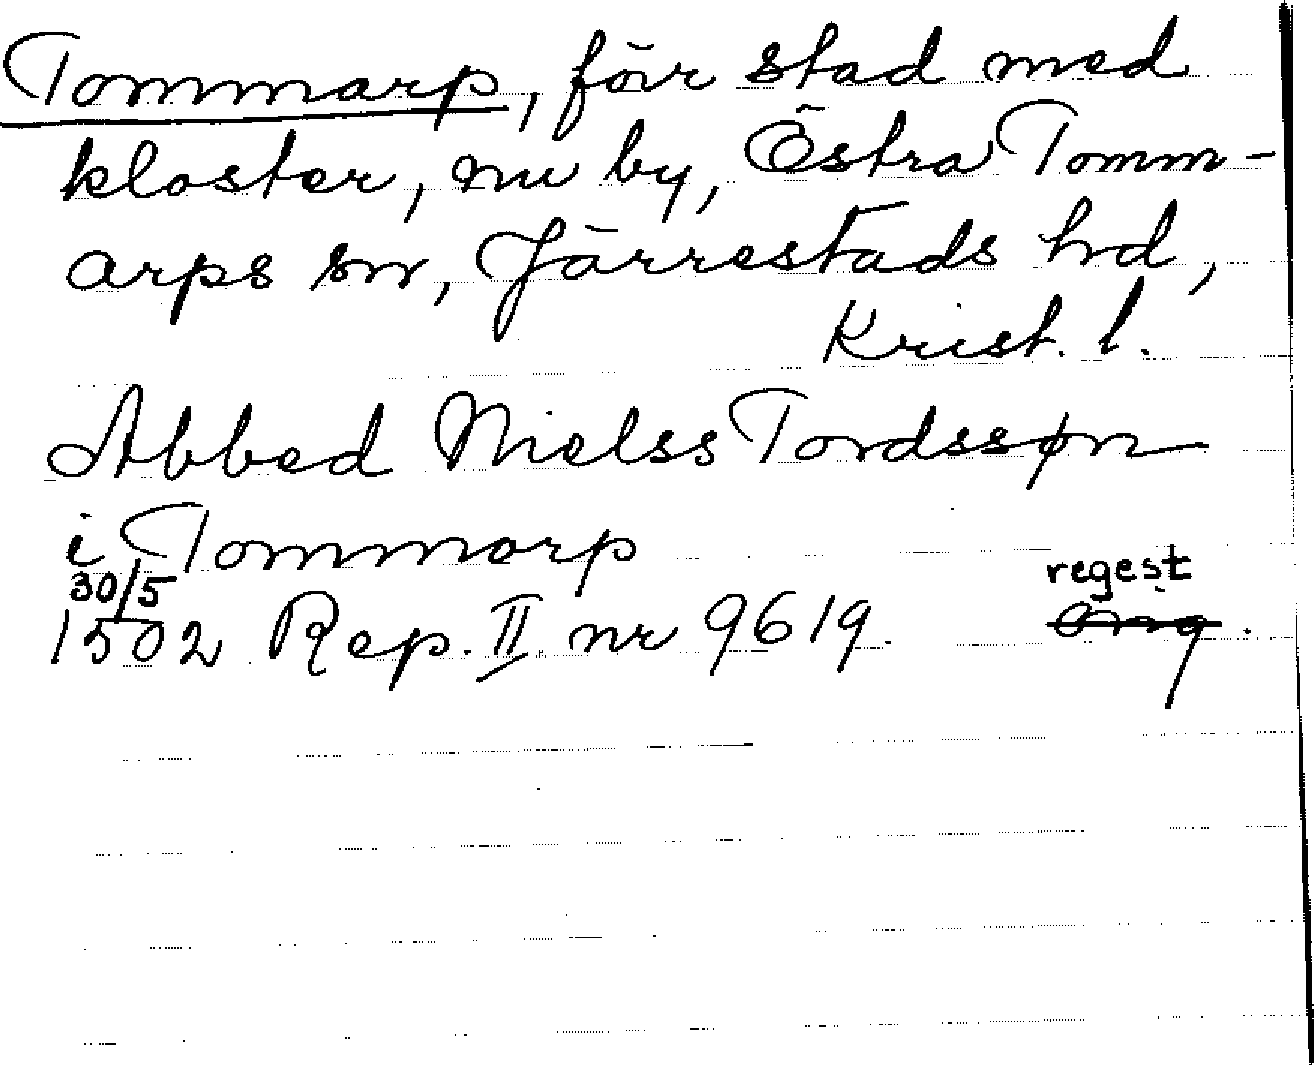 Tommarp, förr stad med
kloster, nu by, Östra Tomm-
arps sn, Järrestads hd,
Krist. l.
Abbed Nielss Tordssøn
i Tommorp
30/5 regest
1502 Rep. II nr 9619. orig.